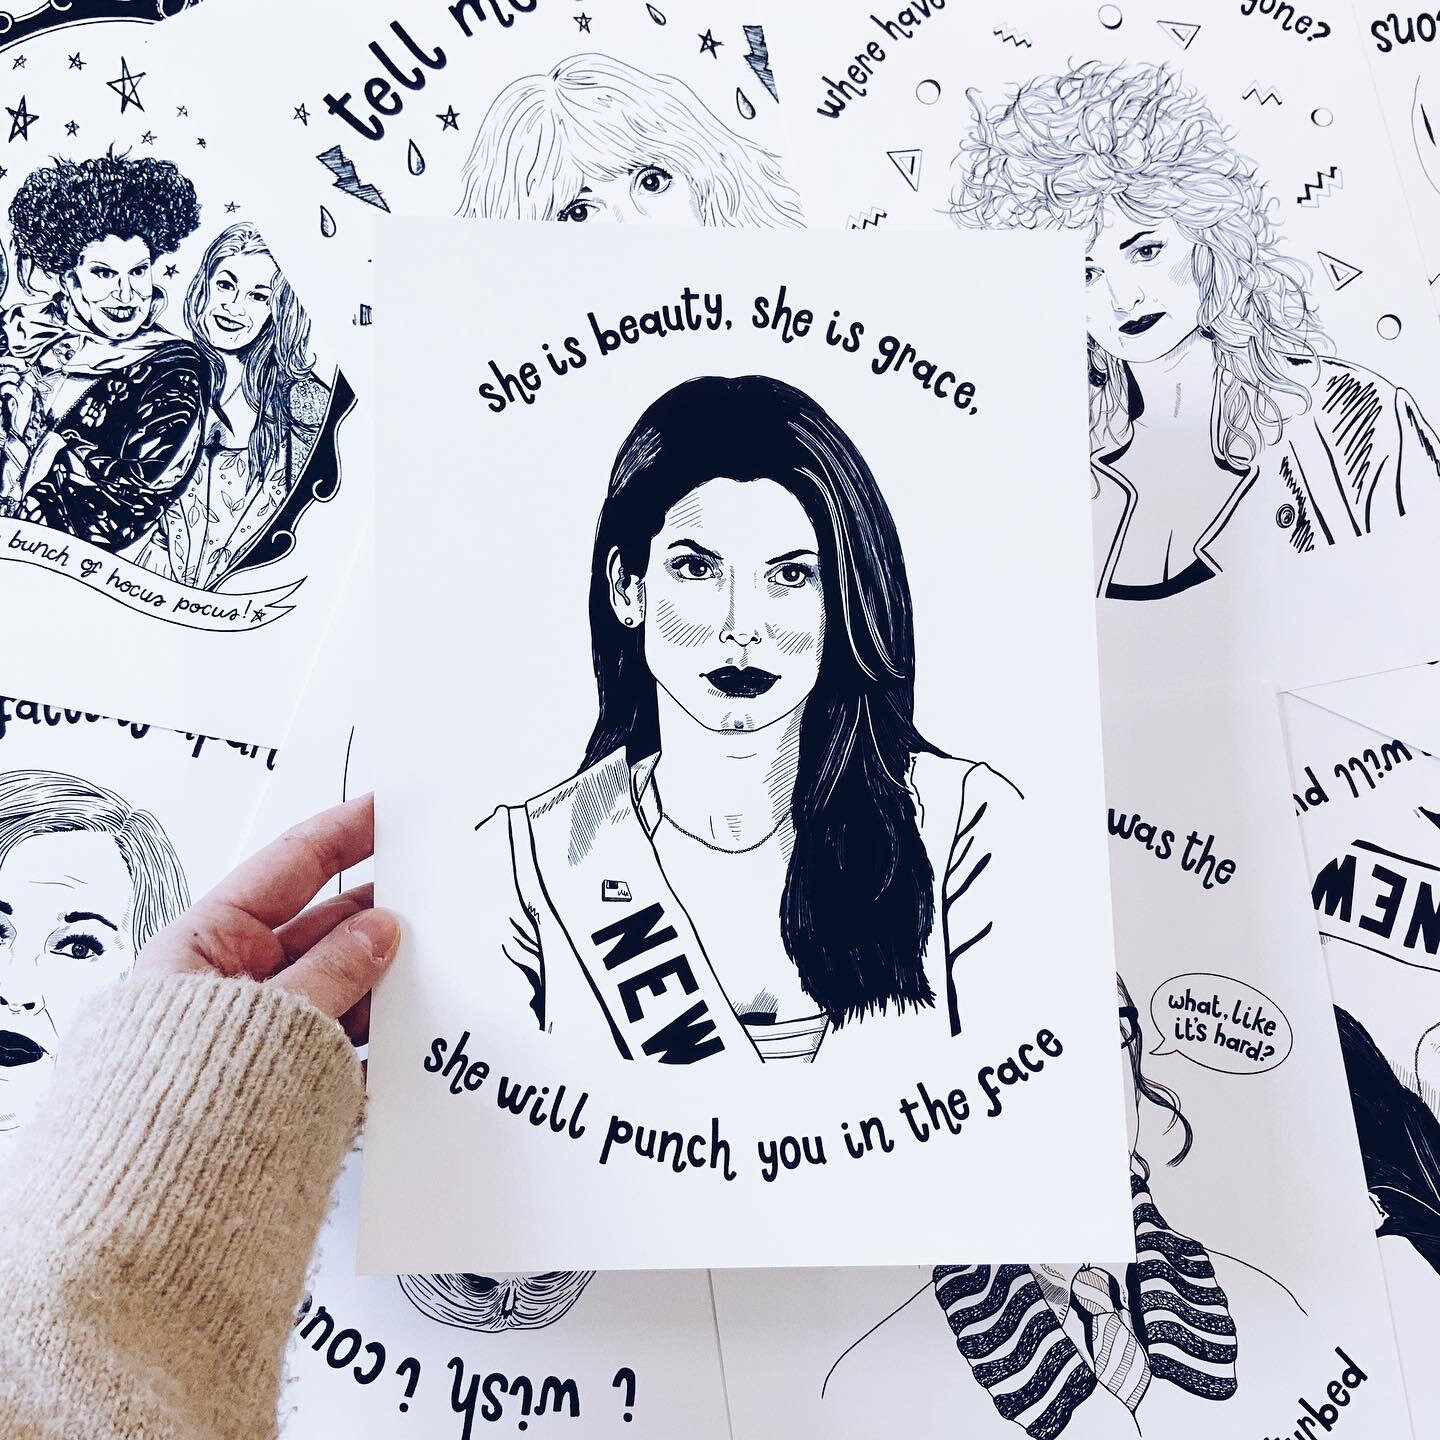 tell me
where have
gone?
she is beauty, she is grace,
NEW
she will punch you in the face
bunch of hocus pocus!
falling apart
was the
what, like
it's hard?
will pu
NEW
i wish i cou
urbed